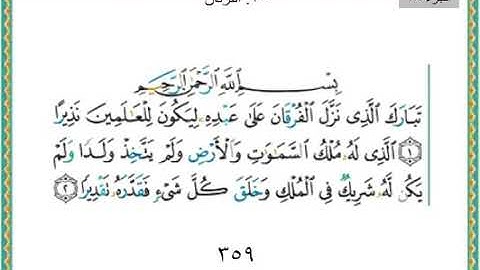 الفرقان
بِسْمِ ٱللَّهِ ٱلرَّحْمَٰنِ ٱلرَّحِيمِ
تَبَارَكَ ٱلَّذِى نَزَّلَ ٱلْفُرْقَانَ عَلَىٰ عَبْدِهِۦ لِيَكُونَ لِلْعَٰلَمِينَ نَذِيرًا
١ ٱلَّذِى لَهُۥ مُلْكُ ٱلسَّمَٰوَٰتِ وَٱلْأَرْضِ وَلَمْ يَتَّخِذْ وَلَدًا وَلَمْ
يَكُن لَّهُۥ شَرِيكٌ فِى ٱلْمُلْكِ وَخَلَقَ كُلَّ شَىْءٍ فَقَدَّرَهُۥ تَقْدِيرًا ٢
٣٥٩